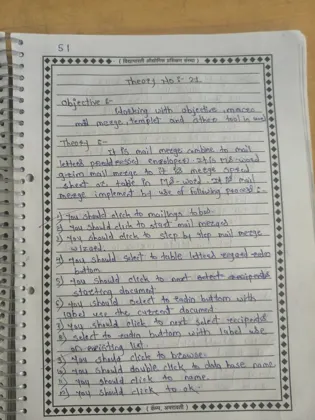 51
Theory No :- 21
Objective :-
Working with objective, macros
mail merge, templet and other tool in word
Theory :-
It is mail merge combine to mail
letters envelopes. It is MS-word
mail merge to it is merge spred
sheet or table in MS-word. It is mail
merge implement by use of following process :-
1) You should click to mailings tab.
2) You should click to start mail merged.
3) You should click to step by step mail merge
wizard.
4) You should select to table letters radio
buttom.
5) You should click to next
starting document.
6) You should select to radio buttom with
label use the current document
7) You should click to next select recipients
8) select to radio buttom with label use
an existing list.
9) You should click to browse.
10) You should double click to data base name
11) You should click to name.
12) You should click to ok.